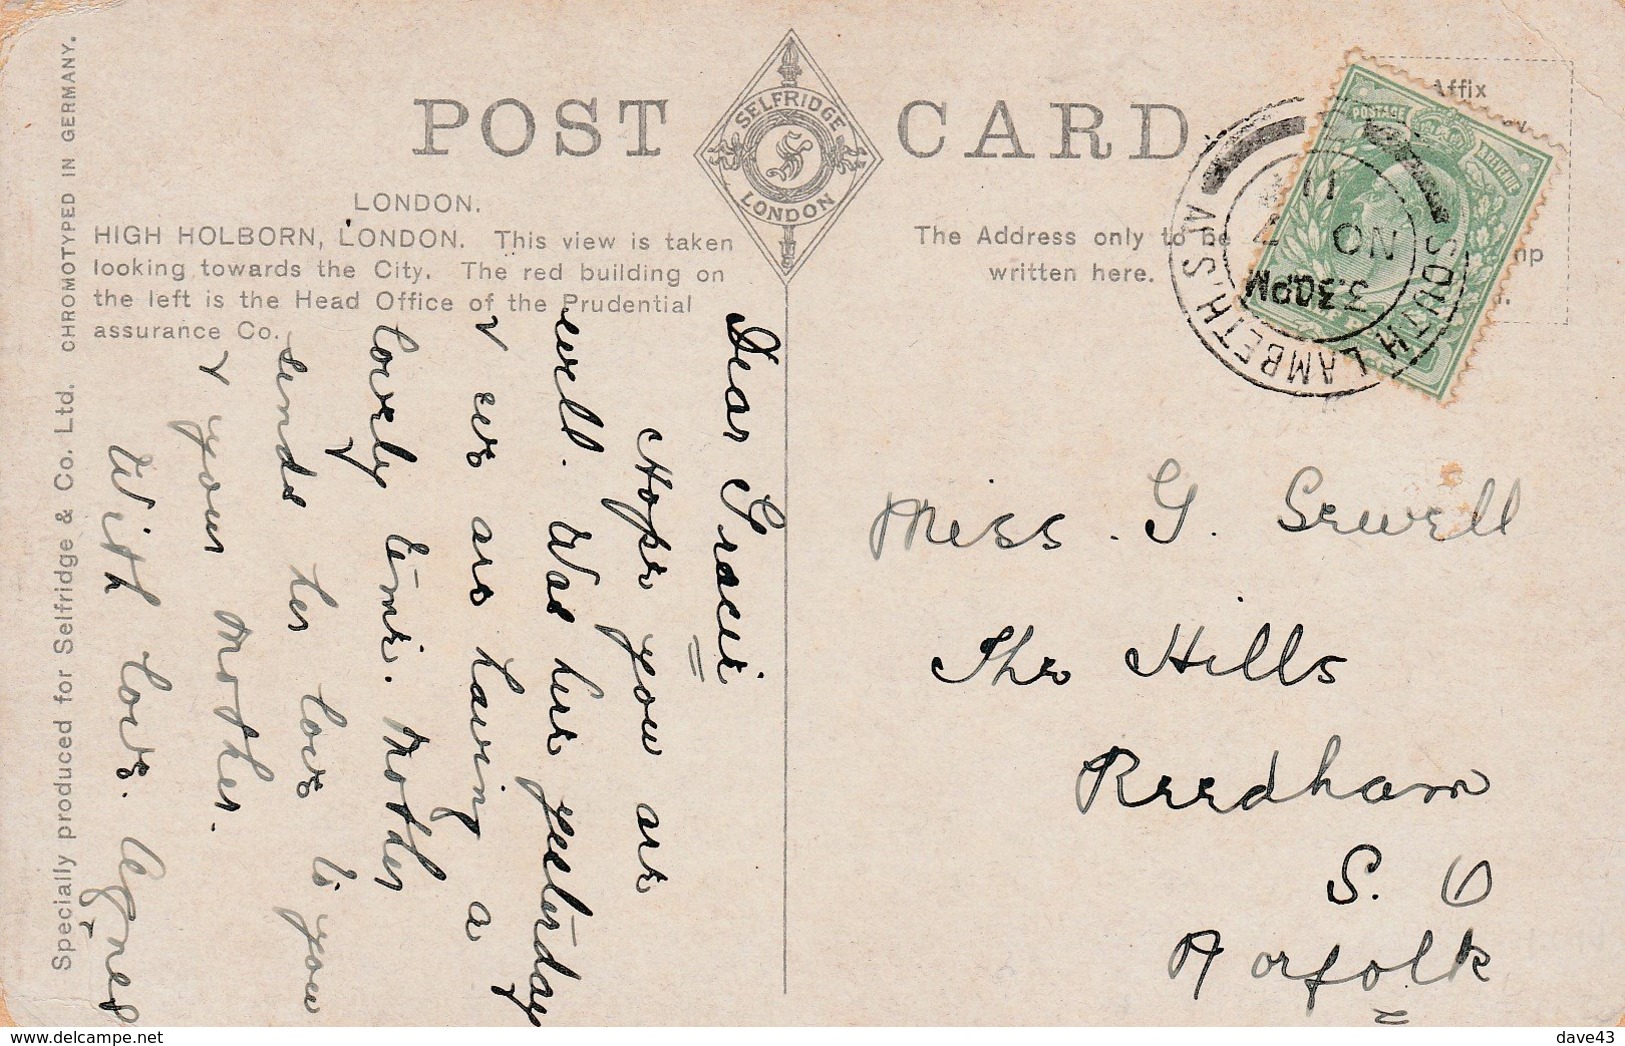 POST CARD
SELFRIDGE
LONDON
LONDON.
HIGH HOLBORN, LONDON. This view is taken
looking towards the City. The red building on
the left is the Head Office of the Prudential
assurance Co.
Specially produced for Selfridge & Co. Ltd. CHROMOTYPED IN GERMANY.
The Address only to be
written here.
Affix
POSTAGE
& REVENUE
SOUTH LAMBETH. S.
3.30PM
NO 7
11
Dear Gracie
Hope you are
well. Was here yesterday
& we are having a
lovely time. Mother
sends her love to you
& your Mother.
With love. Agnes
Miss. G. Sewell
The Hills
Reedham
S. O
Norfolk
www.delcampe.net
dave43